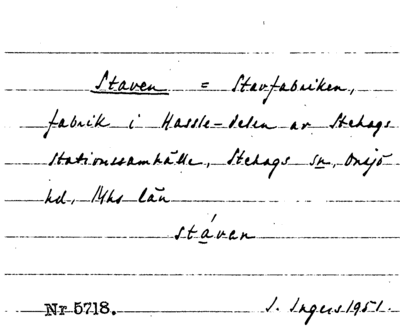 Staven = Stavfabriken,
fabrik i Hassle-delen av Stehags
stationssamhälle, Stehags sn, Onsjö
hd, Mhs län
stávan
Nr 5718. I. Ingers 1951.